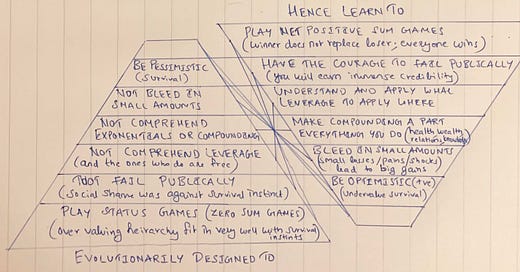 HENCE LEARN TO
PLAY NET POSITIVE SUM GAMES
(Winner does not replace loser; everyone wins)
HAVE THE COURAGE TO FAIL PUBLICALLY
(you will earn immense credibility)
UNDERSTAND AND APPLY WHAT
LEVERAGE TO APPLY WHERE
MAKE COMPOUNDING A PART
EVERYTHING YOU DO (health, wealth,
relations, knowledge)
BLEED IN SMALL AMOUNTS
(small losses/pains/shocks)
lead to big gains
BE OPTIMISTIC (+ve)
(undervalue survival)
BE PESSIMISTIC
(survival)
NOT BLEED IN
SMALL AMOUNTS
NOT COMPREHEND
EXPONENTIALS OR COMPOUNDING
NOT COMPREHEND LEVERAGE
(and the ones who do are free)
NOT FAIL PUBLICALLY
(social shame was against survival instinct)
PLAY STATUS GAMES (ZERO SUM GAMES)
(over valuing heirarchy fit in very well with survival
instints)
EVOLUTIONARILY DESIGNED TO